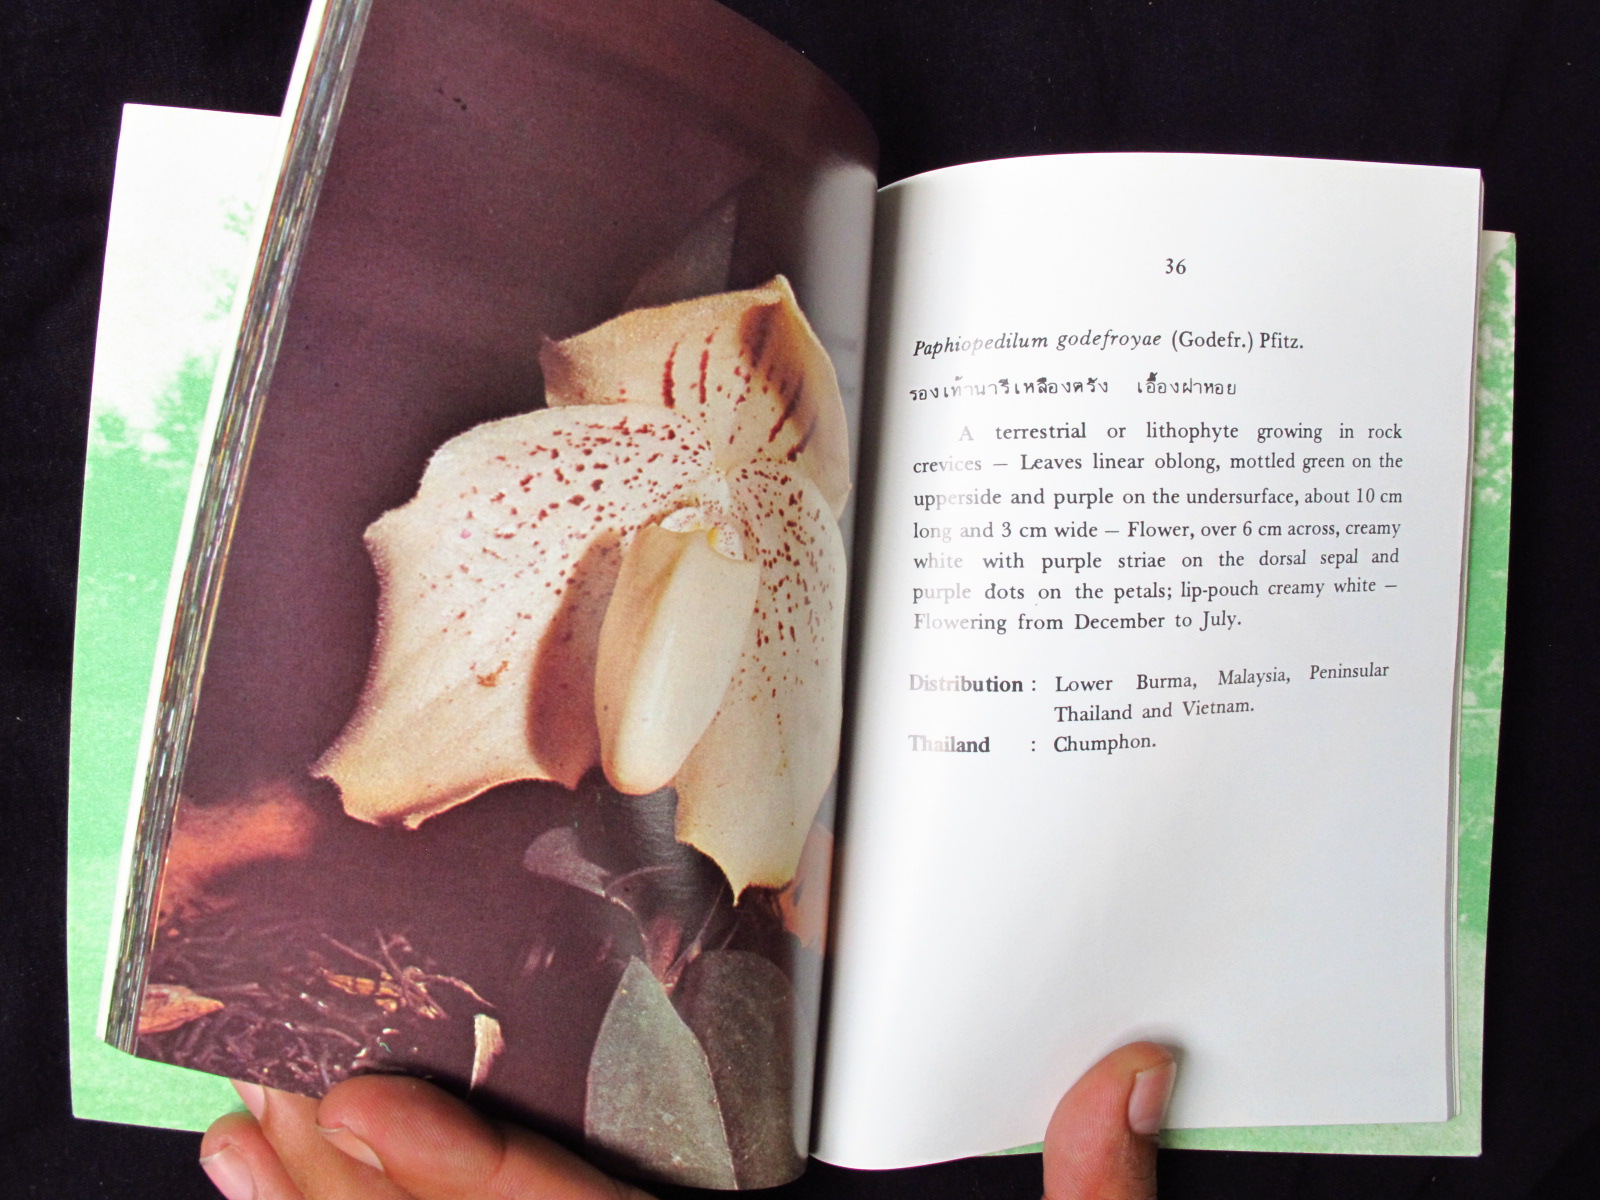 36
Paphiopedilum godefroyae (Godefr.) Pfitz.
รองเท้านารีเหลืองตรัง เอื้องฝาหอย
A terrestrial or lithophyte growing in rock
crevices — Leaves linear oblong, mottled green on the
upperside and purple on the undersurface, about 10 cm
long and 3 cm wide — Flower, over 6 cm across, creamy
white with purple striae on the dorsal sepal and
purple dots on the petals; lip-pouch creamy white —
Flowering from December to July.
Distribution : Lower Burma, Malaysia, Peninsular
Thailand and Vietnam.
Thailand : Chumphon.